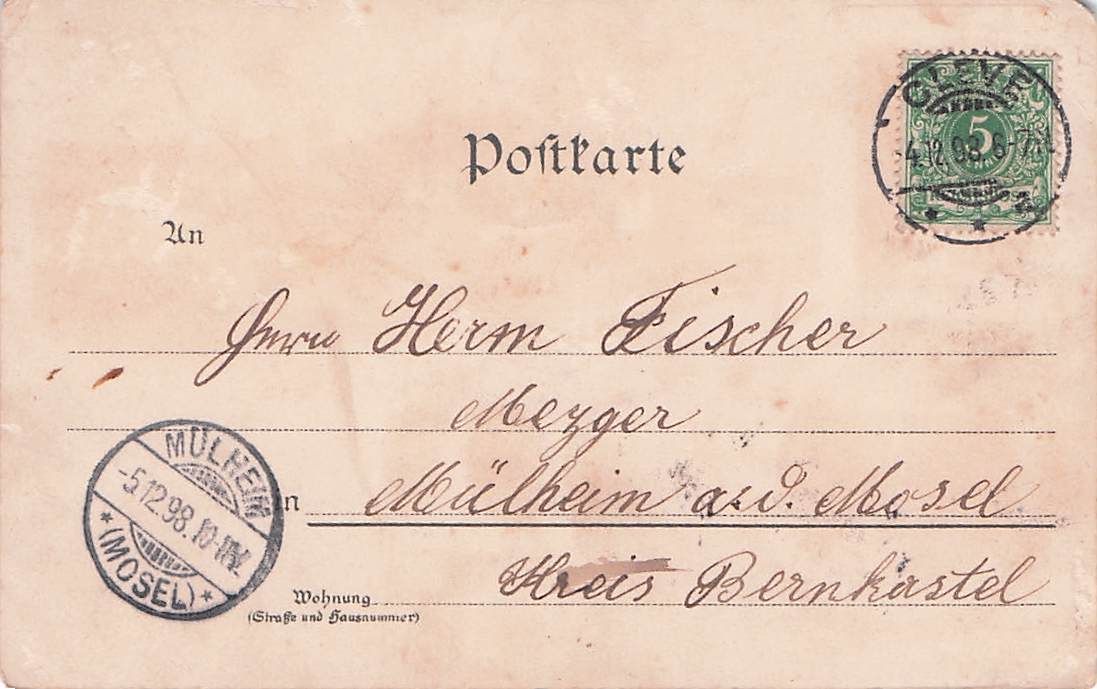 CLEVE
-4.12.98.6-7N.
5
*  *  a
Postkarte
An
Herrn Herm Fischer
Mezger
in Mülheim a. d. Mosel
Kreis Bernkastel
Wohnung
(Straße und Hausnummer)
MÜLHEIM
-5.12.98.10-11V.
* (MOSEL) *